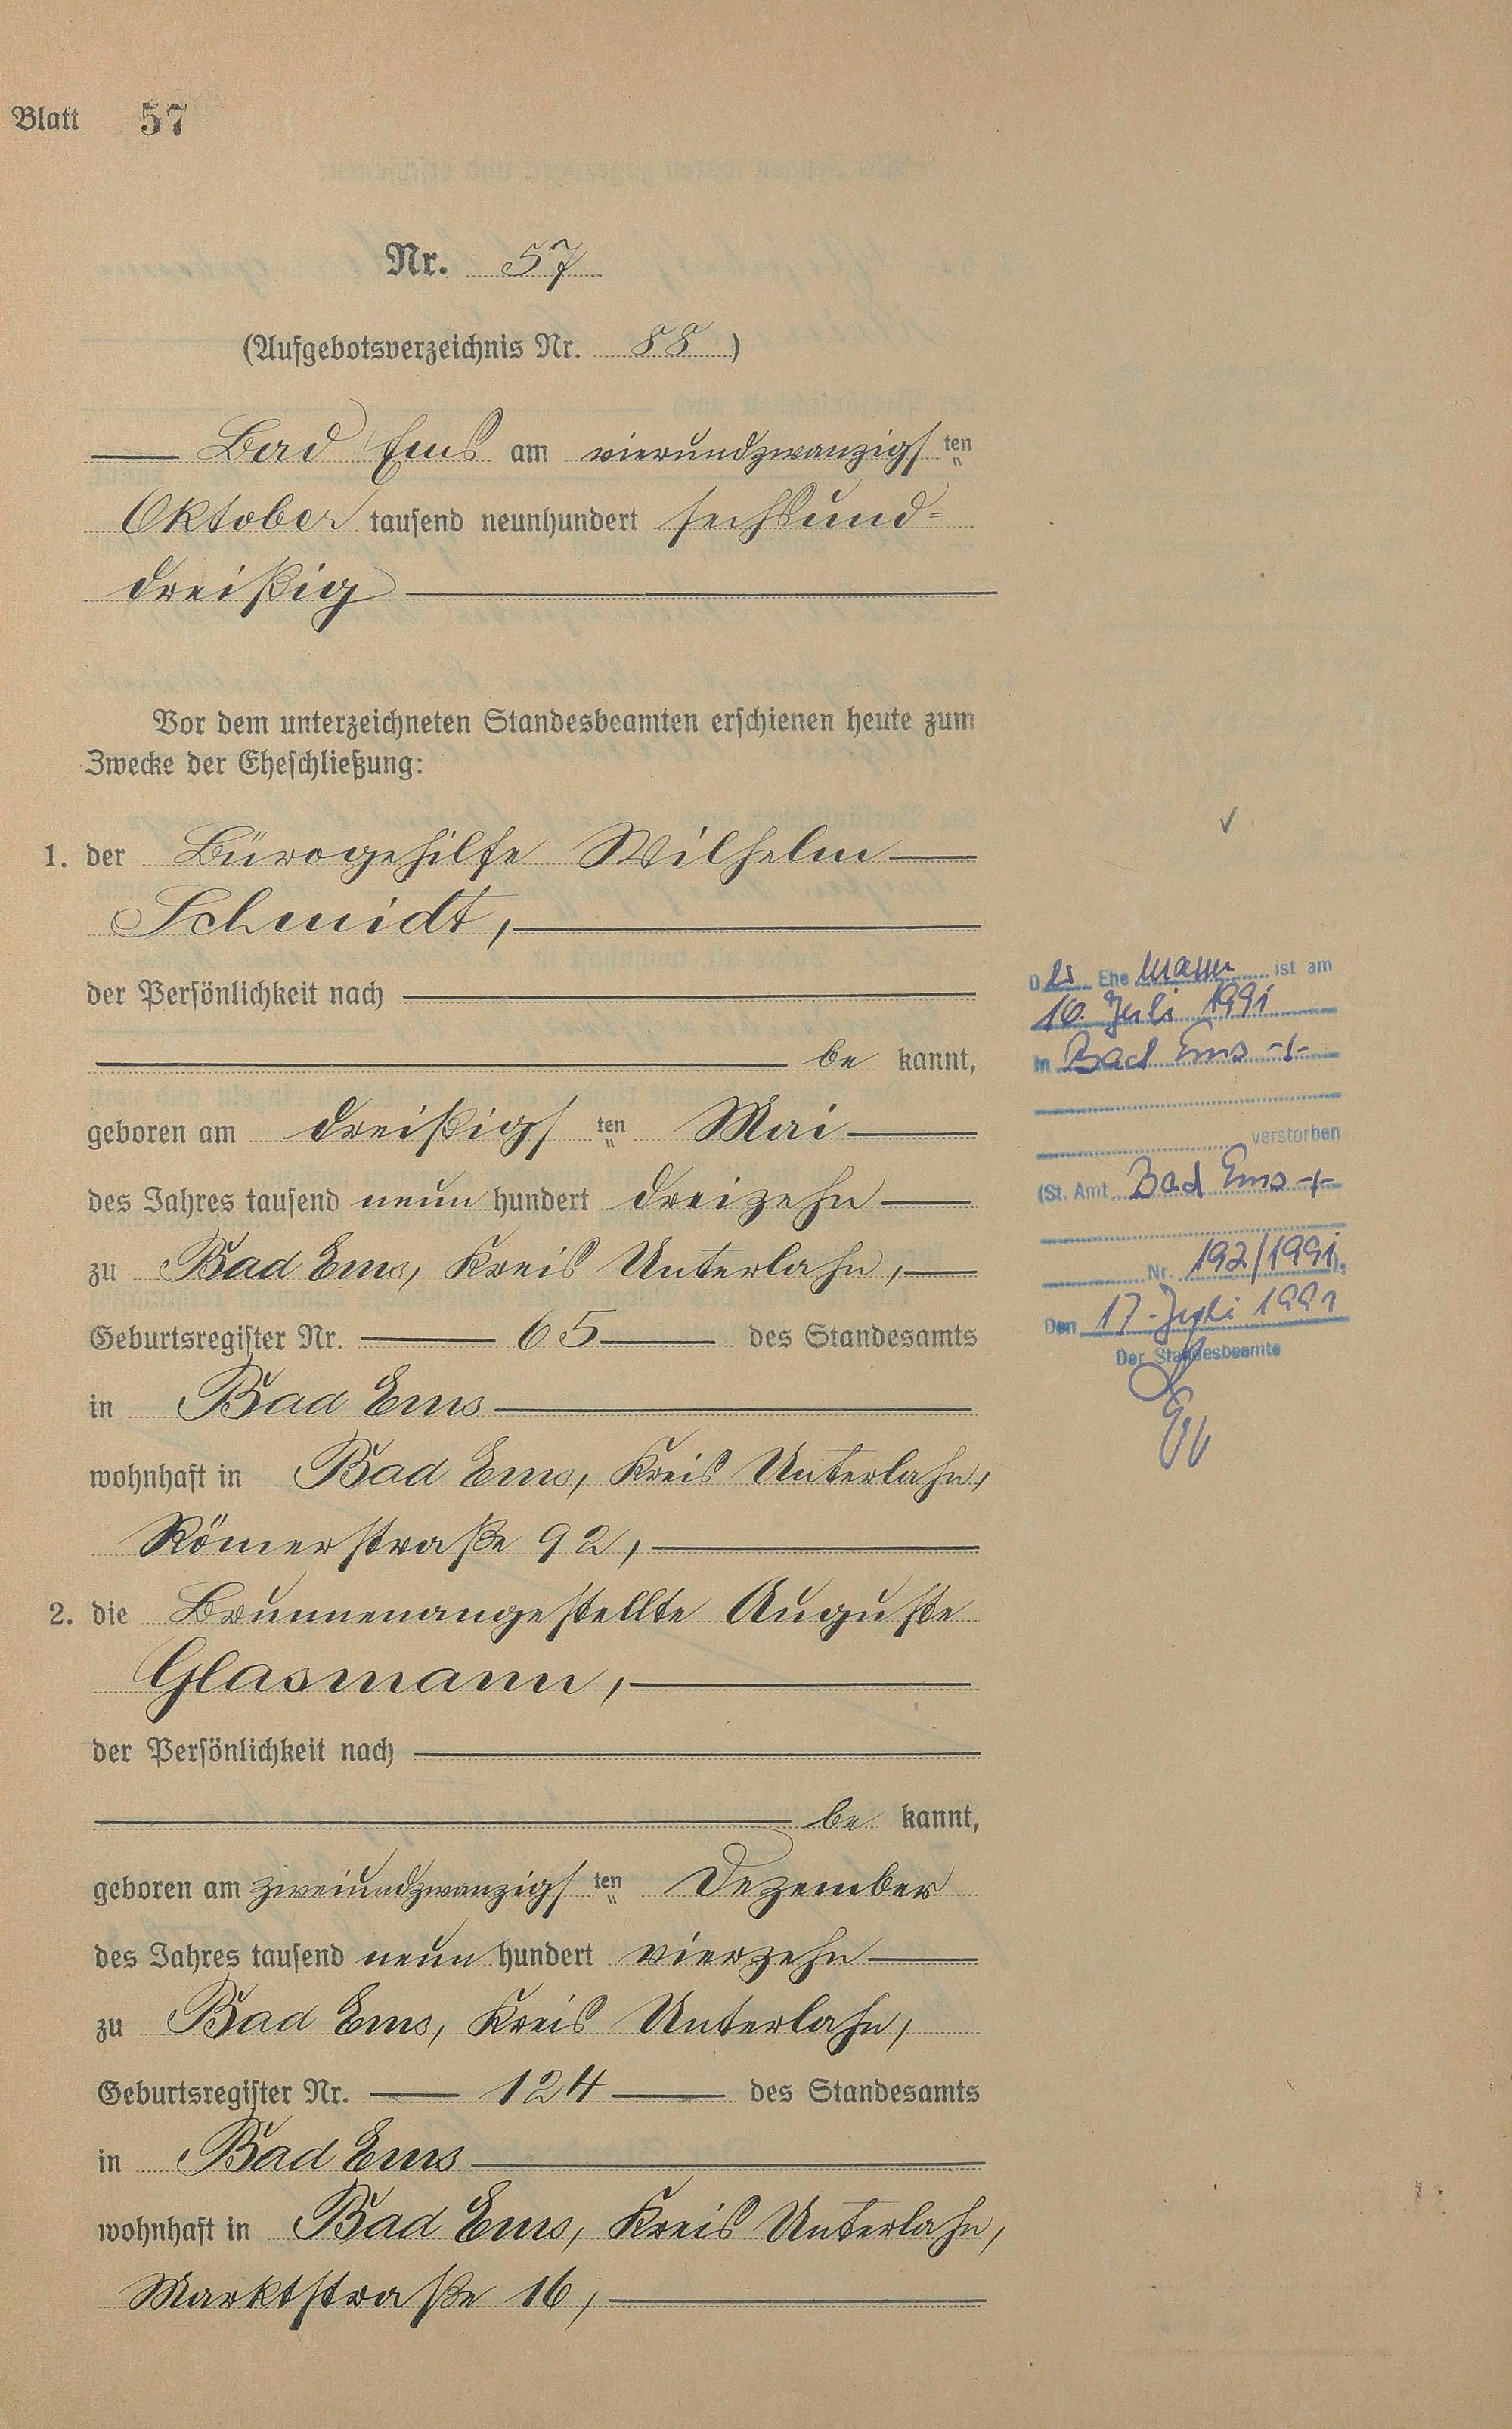 Blatt 57
Nr. 57
(Aufgebotsverzeichnis Nr. 88)
Bad Ems am vierundzwanzigsten
Oktober tausend neunhundert sechsund=
dreißig
Vor dem unterzeichneten Standesbeamten erschienen heute zum
Zwecke der Eheschließung:
1. der Bürogehilfe Wilhelm
Schmidt,
der Persönlichkeit nach
be kannt,
geboren am dreißigsten Mai
des Jahres tausend neun hundert dreizehn
zu Bad Ems, Kreis Unterlahn,
Geburtsregister Nr. 65 des Standesamts
in Bad Ems
wohnhaft in Bad Ems, Kreis Unterlahn,
Römerstraße 92,
2. die Brunnenangestellte Auguste
Glasmann,
der Persönlichkeit nach
be kannt,
geboren am zweiundzwanzigsten Dezember
des Jahres tausend neun hundert vierzehn
zu Bad Ems, Kreis Unterlahn,
Geburtsregister Nr. 124 des Standesamts
in Bad Ems
wohnhaft in Bad Ems, Kreis Unterlahn,
Marktstraße 16,
Der Ehemann ist am
16. Juli 1991
in Bad Ems
verstorben
(St. Amt Bad Ems
Nr. 192/1991).
Den 17. Juli 1991
Der Standesbeamte